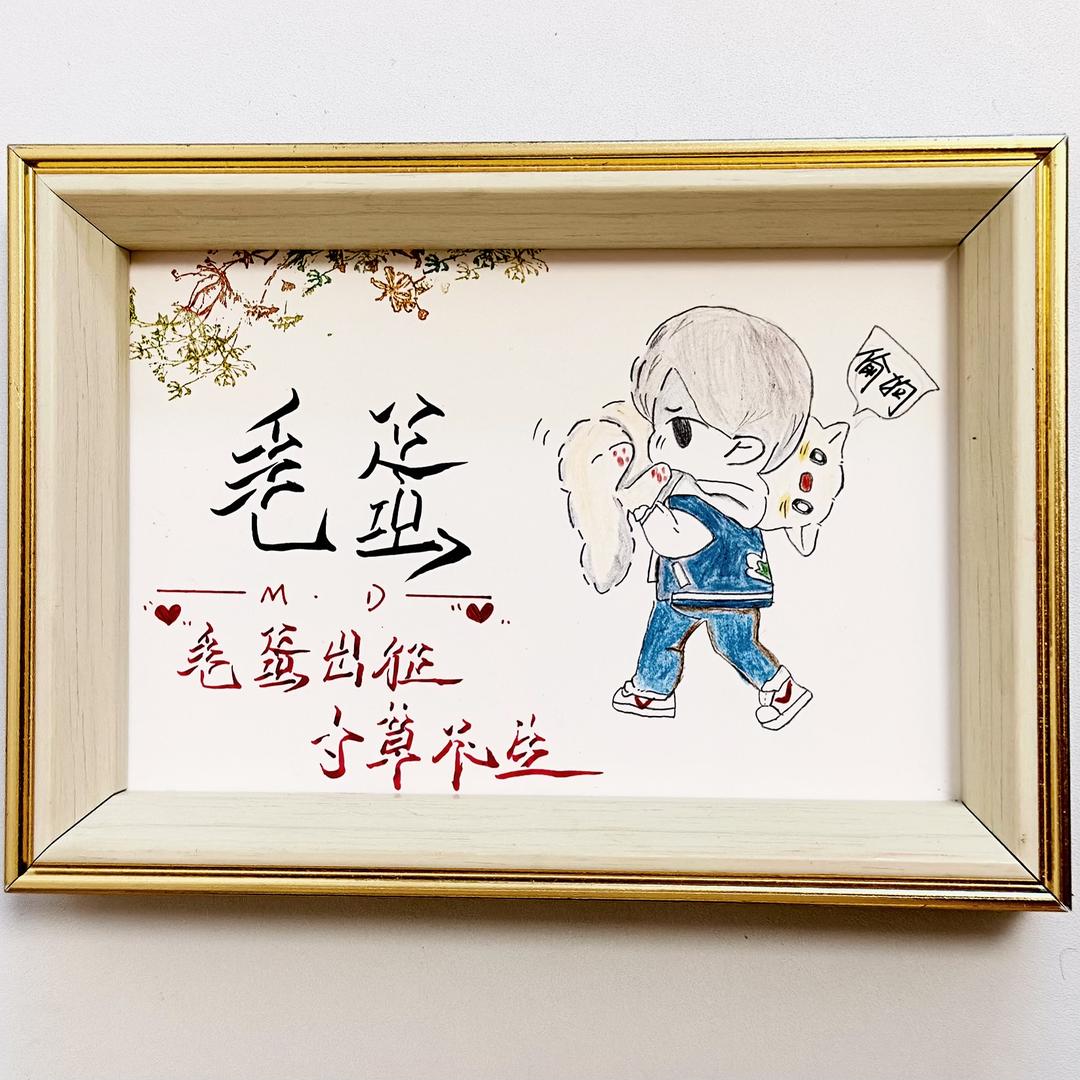 毛蛋
M·D
毛蛋出征
寸草不生
偷狗